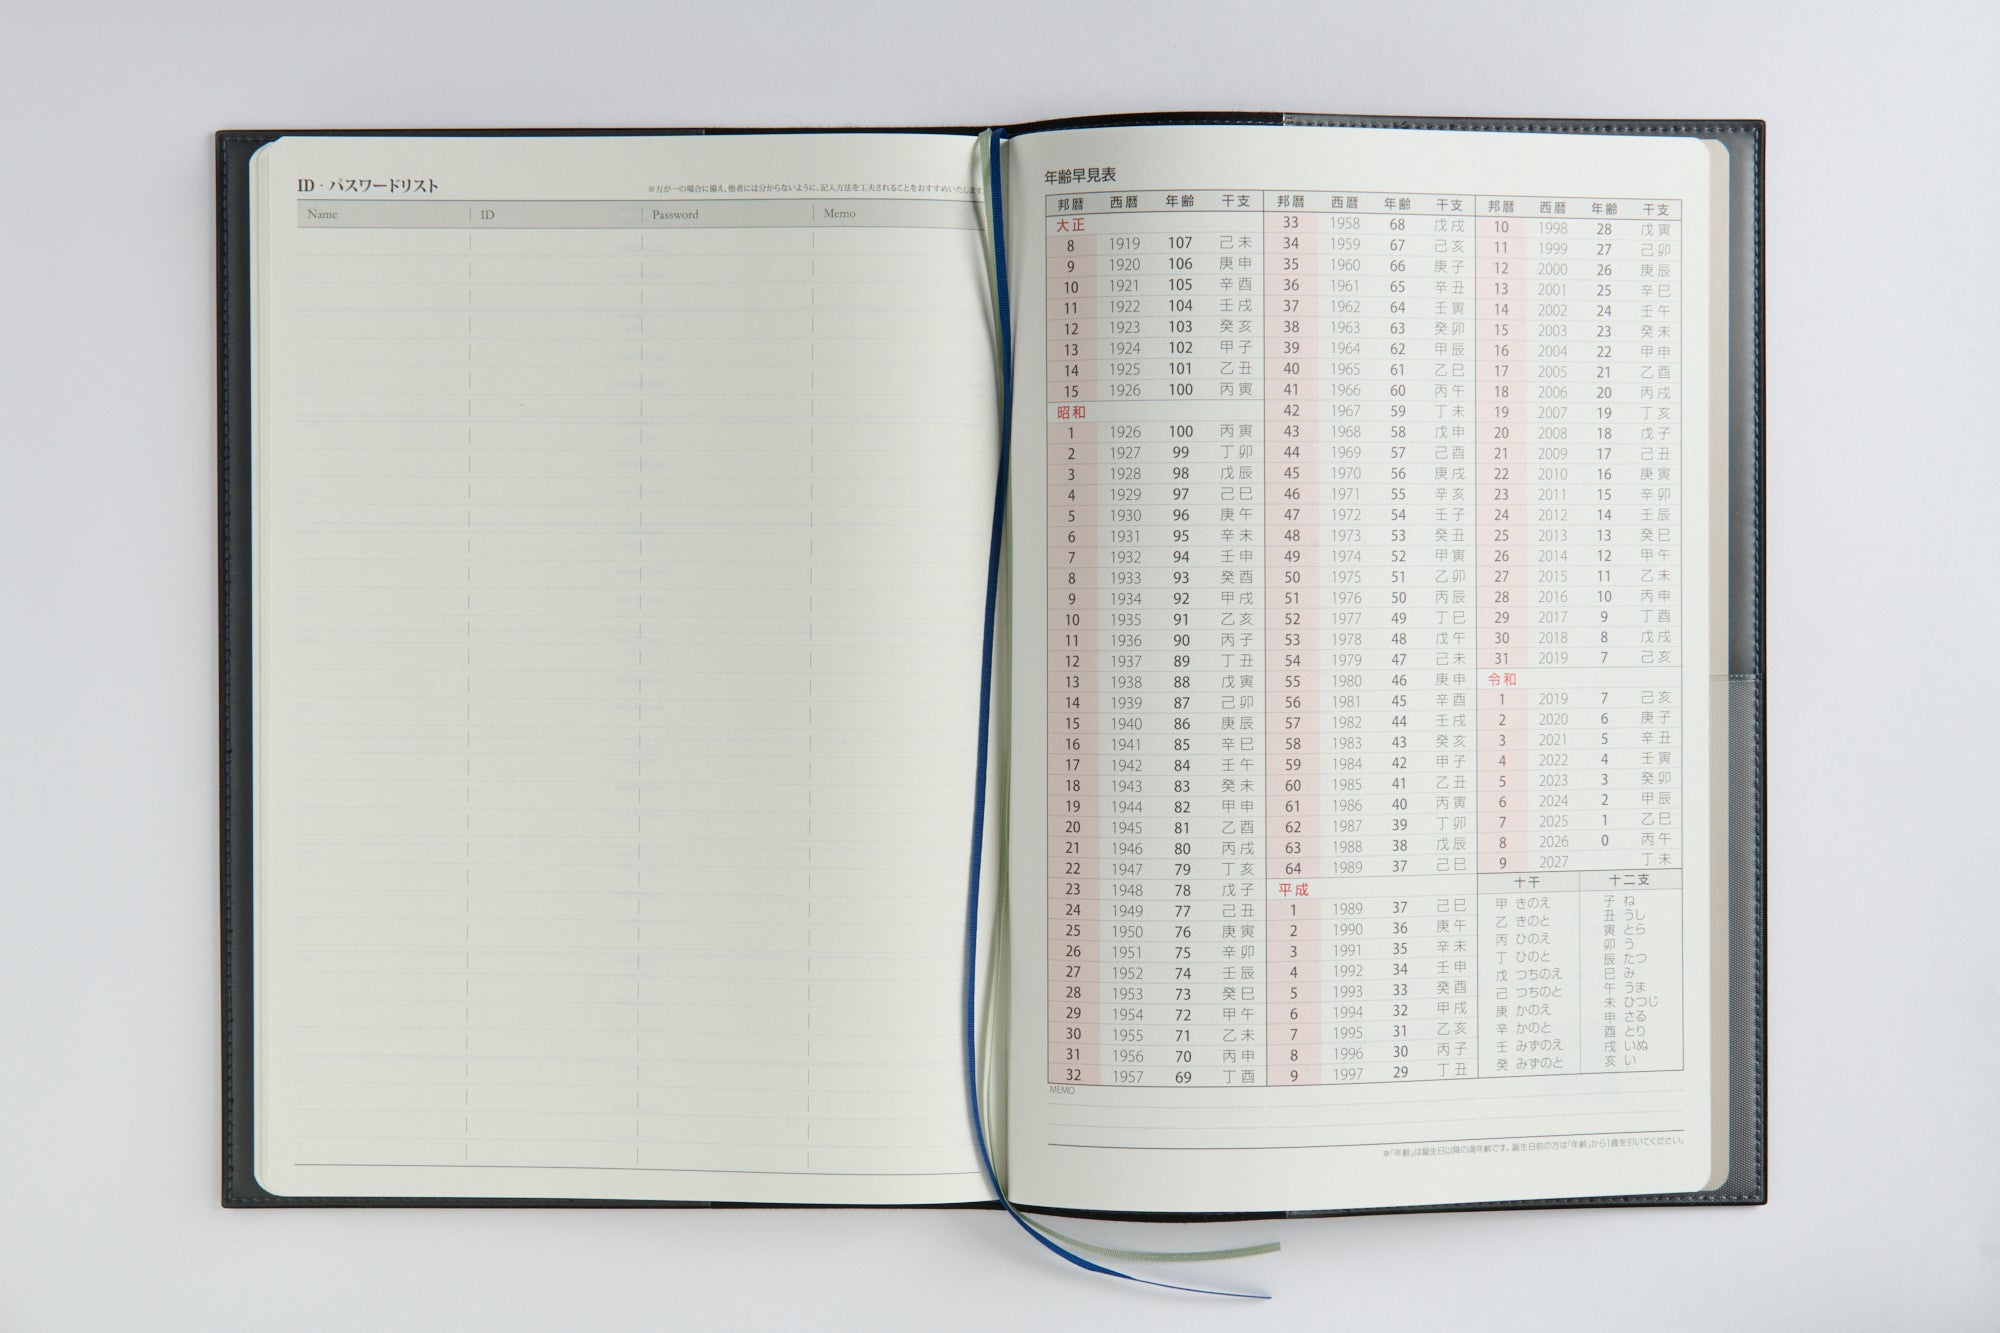 ID・パスワードリスト
※万が一の場合に備え、他者には分からないように、記入方法を工夫されることをおすすめいたします
Name ID Password Memo
年齢早見表
邦暦 西暦 年齢 干支
大正
8 1919 107 己未
9 1920 106 庚申
10 1921 105 辛酉
11 1922 104 壬戌
12 1923 103 癸亥
13 1924 102 甲子
14 1925 101 乙丑
15 1926 100 丙寅
昭和
1 1926 100 丙寅
2 1927 99 丁卯
3 1928 98 戊辰
4 1929 97 己巳
5 1930 96 庚午
6 1931 95 辛未
7 1932 94 壬申
8 1933 93 癸酉
9 1934 92 甲戌
10 1935 91 乙亥
11 1936 90 丙子
12 1937 89 丁丑
13 1938 88 戊寅
14 1939 87 己卯
15 1940 86 庚辰
16 1941 85 辛巳
17 1942 84 壬午
18 1943 83 癸未
19 1944 82 甲申
20 1945 81 乙酉
21 1946 80 丙戌
22 1947 79 丁亥
23 1948 78 戊子
24 1949 77 己丑
25 1950 76 庚寅
26 1951 75 辛卯
27 1952 74 壬辰
28 1953 73 癸巳
29 1954 72 甲午
30 1955 71 乙未
31 1956 70 丙申
32 1957 69 丁酉
邦暦 西暦 年齢 干支
33 1958 68 戊戌
34 1959 67 己亥
35 1960 66 庚子
36 1961 65 辛丑
37 1962 64 壬寅
38 1963 63 癸卯
39 1964 62 甲辰
40 1965 61 乙巳
41 1966 60 丙午
42 1967 59 丁未
43 1968 58 戊申
44 1969 57 己酉
45 1970 56 庚戌
46 1971 55 辛亥
47 1972 54 壬子
48 1973 53 癸丑
49 1974 52 甲寅
50 1975 51 乙卯
51 1976 50 丙辰
52 1977 49 丁巳
53 1978 48 戊午
54 1979 47 己未
55 1980 46 庚申
56 1981 45 辛酉
57 1982 44 壬戌
58 1983 43 癸亥
59 1984 42 甲子
60 1985 41 乙丑
61 1986 40 丙寅
62 1987 39 丁卯
63 1988 38 戊辰
64 1989 37 己巳
平成
1 1989 37 己巳
2 1990 36 庚午
3 1991 35 辛未
4 1992 34 壬申
5 1993 33 癸酉
6 1994 32 甲戌
7 1995 31 乙亥
8 1996 30 丙子
9 1997 29 丁丑
邦暦 西暦 年齢 干支
10 1998 28 戊寅
11 1999 27 己卯
12 2000 26 庚辰
13 2001 25 辛巳
14 2002 24 壬午
15 2003 23 癸未
16 2004 22 甲申
17 2005 21 乙酉
18 2006 20 丙戌
19 2007 19 丁亥
20 2008 18 戊子
21 2009 17 己丑
22 2010 16 庚寅
23 2011 15 辛卯
24 2012 14 壬辰
25 2013 13 癸巳
26 2014 12 甲午
27 2015 11 乙未
28 2016 10 丙申
29 2017 9 丁酉
30 2018 8 戊戌
31 2019 7 己亥
令和
1 2019 7 己亥
2 2020 6 庚子
3 2021 5 辛丑
4 2022 4 壬寅
5 2023 3 癸卯
6 2024 2 甲辰
7 2025 1 乙巳
8 2026 0 丙午
9 2027 丁未
十干
甲 きのえ
乙 きのと
丙 ひのえ
丁 ひのと
戊 つちのえ
己 つちのと
庚 かのえ
辛 かのと
壬 みずのえ
癸 みずのと
十二支
子 ね
丑 うし
寅 とら
卯 う
辰 たつ
巳 み
午 うま
未 ひつじ
申 さる
酉 とり
戌 いぬ
亥 い
MEMO
※「年齢」は誕生日以降の満年齢です。誕生日前の方は「年齢」から1歳を引いてください。